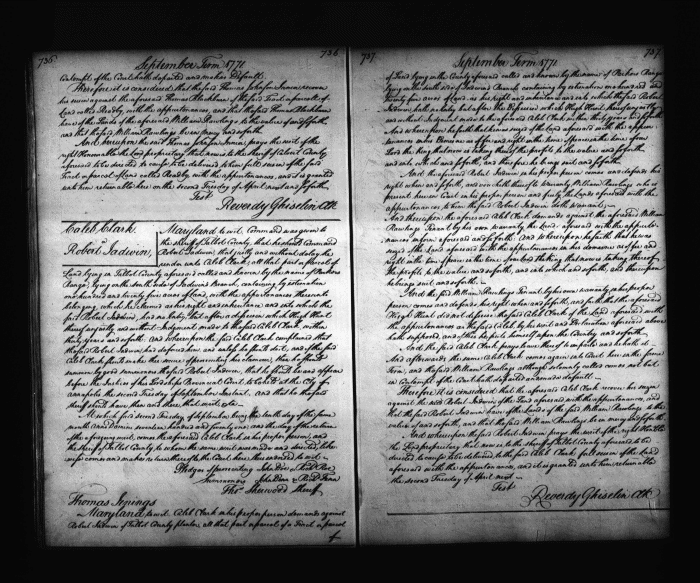 736
September Term 1771
736
Contempt of the Court hath departed and makes Default
Therefore it is considered that the said Thomas Johnson Junior recover
his seisin against the aforesaid Thomas Blackburn of the said Tract or parcell of
Land called Readly with the appurtenances, and the said Thomas Blackburn
have of the Lands of the aforesaid William Rawlings to the value of and so forth,
and the said William Rawlings be in mercy and so forth
And hereupon the said Thomas Johnson Junior prays the writ of the
right Honourable the Lord proprietary that now is to the Sheriff of Talbot County
aforesaid to be directed to cause to be delivered to him full seisin of the said
Tract or parcel of Land called Readly with the appurtenances, and it is granted
unto him returnable here on the second Tuesday of April next and so forth
Test
Reverdy Ghiselin Clk
Caleb Clark
Robert Jadwin
Maryland to wit, Command was given to
the Sheriff of Talbot County that he should Command
Robert Jadwin, that justly and without delay he
render unto Caleb Clark all that part or parcel of
Land lying in Talbot County aforesaid called and known by the name of Parkers
Range lying on the North side of Jadwins Branch, containing by estimation
one hundred and twenty five acres of Land, with the appurtenances thereunto
belonging, which he claims as his right and inheritance and into which the
said Robert Jadwin, has no Entry, but after a disseisin which Hugh Hunt
thereof unjustly and without Judgment made to the said Caleb Clark, within
thirty years and so forth. And whereupon the said Caleb Clark complained that
the said Robert Jadwin, had deforced him, and unless he shall do it, and if the said
Caleb Clark should make the same off prosecuting his claim, then he should
summon by good summoners the said Robert Jadwin, that he should be and appear
before the Justices of his Lordships Provincial Court to be held at the City of
Annapolis the second Tuesday of September Instant, and that he the said
Sheriff should have then and there that writ &ca
At which said second Tuesday of September being the tenth day of the same
month Anno Domini seventeen hundred and seventy one, and the day of the return
of the aforegoing writ, comes the aforesaid Caleb Clark in his proper person, and
the Sheriff of Talbot County to whom the same writ was in form and directed, likewise
comes and makes return thereof to the Court here thus endorsed to wit
Pledges of prosecuting John Doe & Richd Roe
Summoners John Den & Richd Fenn
Thos Sherwood Sheriff
Thomas Jenings
Maryland to wit, Caleb Clark in his proper person demands against
Robert Jadwin of Talbot County planter, all that part or parcel of a Tract or parcel
737
September Term 1771
737
of Land lying in the County aforesaid called and known by the name of Parkers Range
lying on the North side of Jadwins Branch containing by estimation one hundred and
twenty five acres of Land, as his right and inheritance and into which the said Robert
Jadwin hath no Entry but after the disseisin which Hugh Hunt thereof unjustly
and without Judgment made to the aforesaid Caleb Clark within thirty years and so forth
And whereupon he saith that he was seized of the Land aforesaid with the appurte-
nances in his Demesne as of fee and right in the time of peace in the time of our
Lord the King that now is by taking thereof the profits to the value and so forth
and into which and so forth, and thereupon he brings suit and so forth
And the aforesaid Robert Jadwin in his proper person comes and defends his
right when and so forth, and vouches thereof to warranty William Rawlings who is
present here in Court in his proper person and freely the Land aforesaid with the
appurtenances to him the said Robert Jadwin doth warrant
And thereupon the aforesaid Caleb Clark demands against the aforesaid William
Rawlings Tenant by his own warranty the Land aforesaid with the appurte-
nances in form aforesaid and so forth. And whereupon he saith that he was
seized of the Land aforesaid with the appurtenances in his demesne as of fee and
right in the time of peace in the time of our Lord the King that now is by taking thereof
the profits to the value and so forth, and into which and so forth, and thereupon
he brings suit and so forth
And the said William Rawlings Tenant by his own warranty in his proper
person comes and defends his right when and so forth, and saith that the aforesaid
Hugh Hunt did not disseise the said Caleb Clark of the Land aforesaid with
the appurtenances as the said Caleb by his writ and Declaration aforesaid above
hath supposed, and of this he puts himself upon the Country and so forth
And the said Caleb Clark prays leave thereof to imparle and he hath it
And afterwards the same Caleb comes again into Court here in the same
Term, and the said William Rawlings although solemnly called comes not but
in Contempt of the Court hath departed and makes default
Therefore it is considered that the aforesaid Caleb Clark recover his seizen
against the said Robert Jadwin of the Land aforesaid with the appurtenances, and
that the said Robert Jadwin have of the Land of the said William Rawlings to the
value of and so forth, and that the said William Rawlings be in mercy and so forth
And whereupon the said Robert Jadwin prays the writ of the right Honble the
Lord proprietary that now is, to the Sheriff of Talbot County aforesaid to be
directed to cause to be delivered to the said Caleb Clark full seizen of the Land
aforesaid with the appurtenances, and it is granted unto him returnable
the second Tuesday of April next
Test
Reverdy Ghiselin Clk